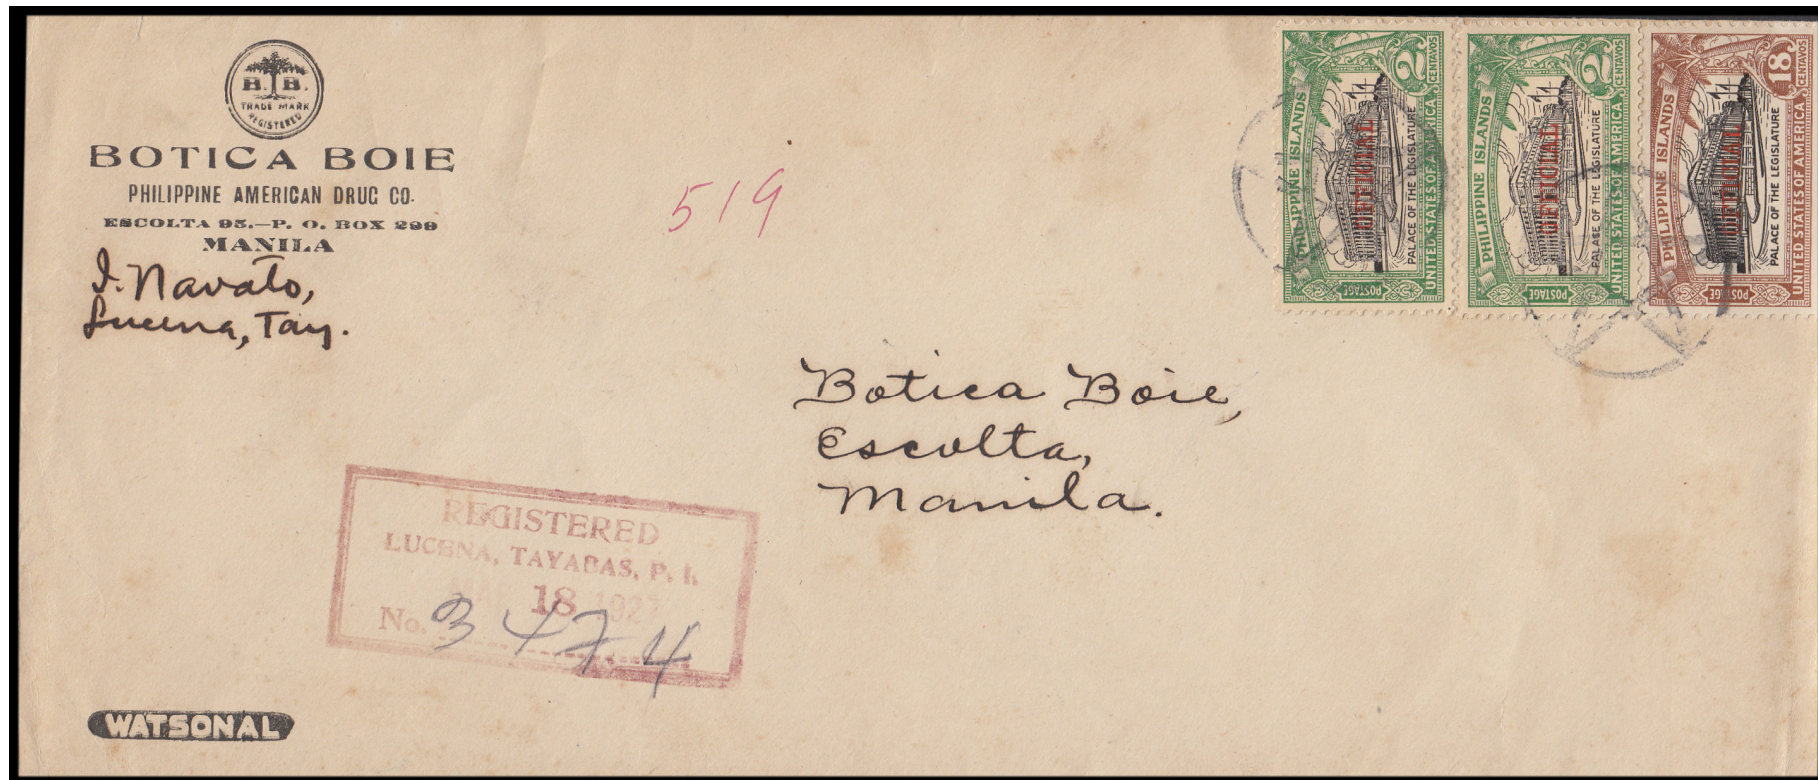 B. B.
TRADE MARK
REGISTERED
BOTICA BOIE
PHILIPPINE AMERICAN DRUG CO.
ESCOLTA 95.—P. O. BOX 299
MANILA
I. Navato,
Lucena, Tay.
519
PHILIPPINE ISLANDS
2
CENTAVOS
OFFICIAL
PALACE OF THE LEGISLATURE
UNITED STATES OF AMERICA
POSTAGE
PHILIPPINE ISLANDS
2
CENTAVOS
OFFICIAL
PALACE OF THE LEGISLATURE
UNITED STATES OF AMERICA
POSTAGE
PHILIPPINE ISLANDS
18
CENTAVOS
OFFICIAL
PALACE OF THE LEGISLATURE
UNITED STATES OF AMERICA
POSTAGE
Botica Boie,
Escolta,
Manila.
REGISTERED
LUCENA, TAYABAS, P. I.
18 1927
No. 3474
WATSONAL